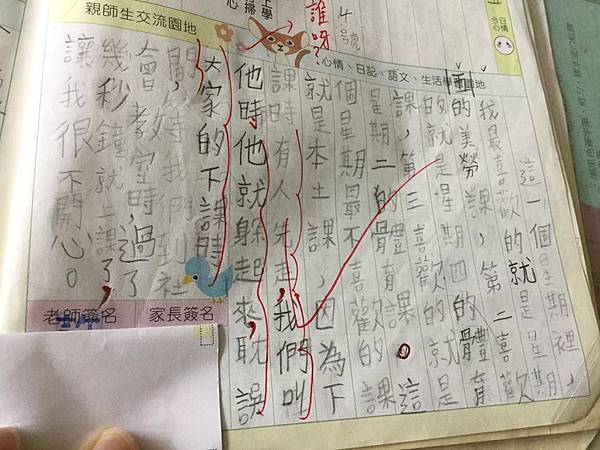 親師生交流園地
誰呀？
4號
心情、日記、語文、生活學習園地
這一個星期裡，
我最喜歡的就是星期
的美勞課，第二喜歡
的就是星期四的體育
課，第三喜歡的就是
星期二的體育課。這
個星期最不喜歡的課
就是本土課，因為下
課時有人先走，我們叫
他時他就躲起來，耽誤
大家的下課時
間，等我們到社
會教室時，過了
幾秒鐘就上課了，
讓我很不開心。
老師簽名
家長簽名